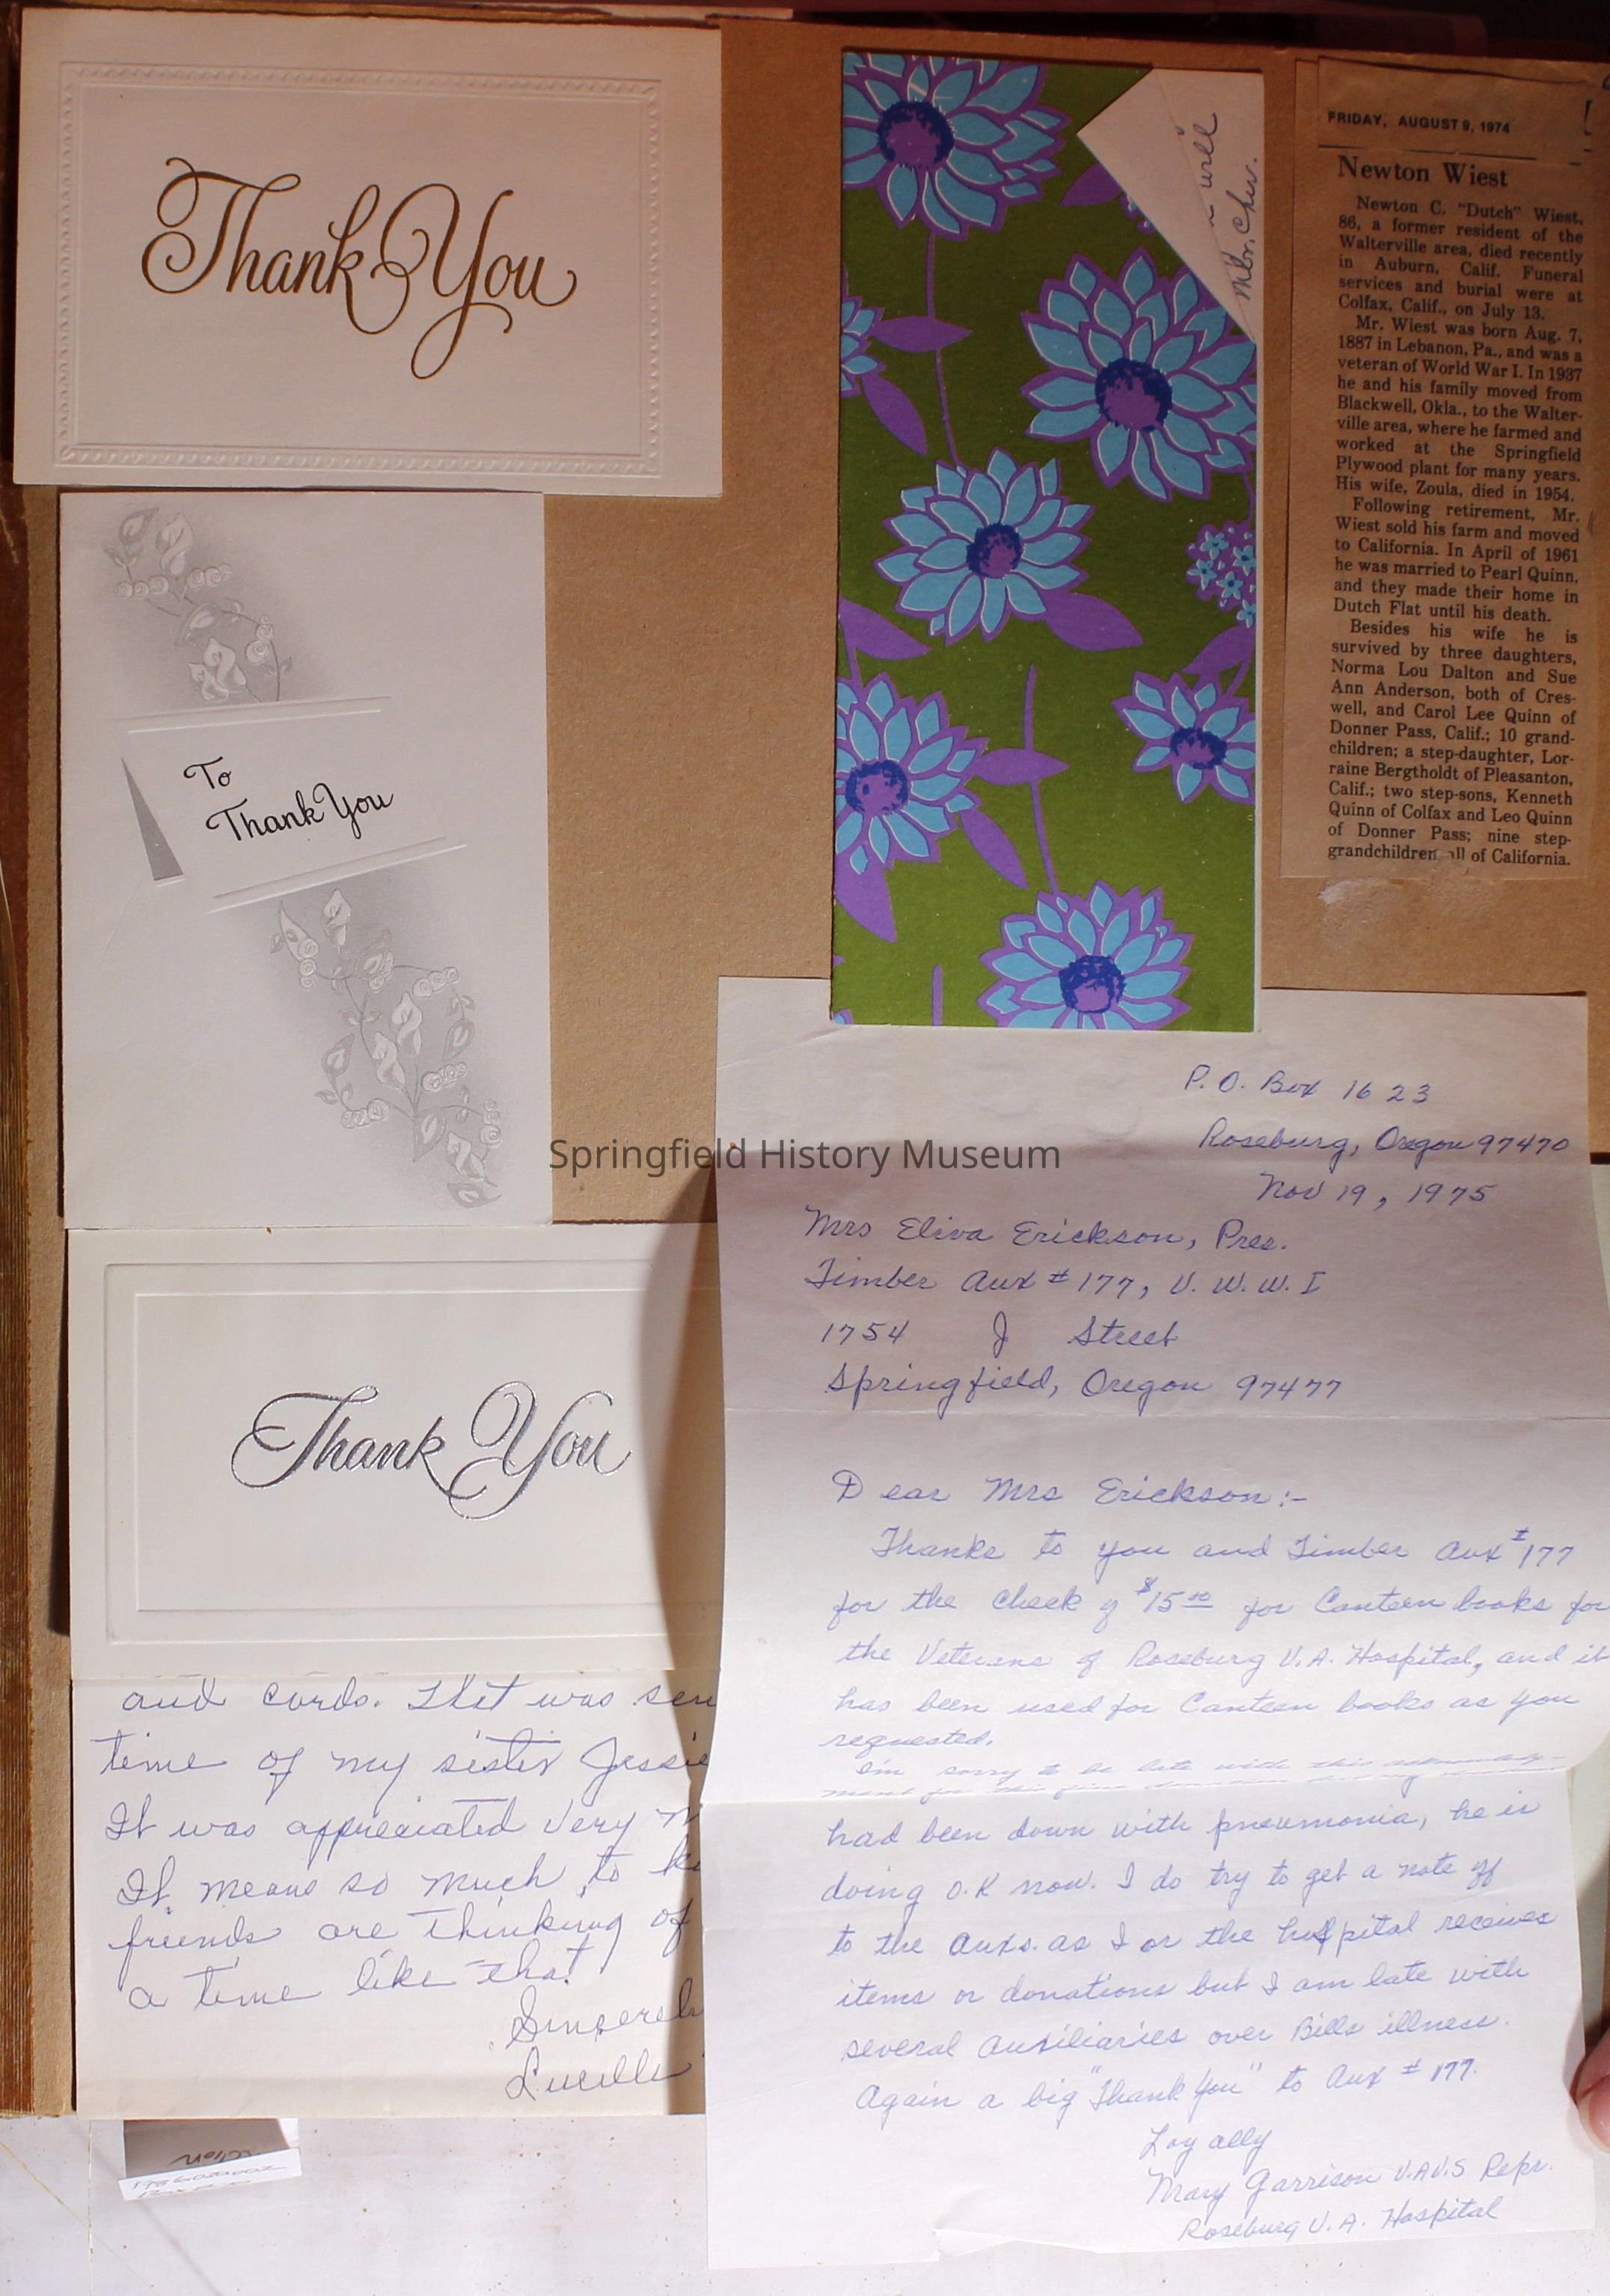 Thank You
To
Thank You
Thank You
and cards. That was
time of my sister Jessie
It was appreciated very
It means so much to
friends are thinking of
a time like that
Lucille
will
FRIDAY, AUGUST 9, 1974
Newton Wiest
Newton C. "Dutch" Wiest,
86, a former resident of the
Walterville area, died recently
in Auburn, Calif. Funeral
services and burial were at
Colfax, Calif., on July 13.
Mr. Wiest was born Aug. 7,
1887 in Lebanon, Pa., and was a
veteran of World War I. In 1937
he and his family moved from
Blackwell, Okla., to the Walter-
ville area, where he farmed and
worked at the Springfield
Plywood plant for many years.
His wife, Zoula, died in 1954.
Following retirement, Mr.
Wiest sold his farm and moved
to California. In April of 1961
he was married to Pearl Quinn,
and they made their home in
Dutch Flat until his death.
Besides his wife he is
survived by three daughters,
Norma Lou Dalton and Sue
Ann Anderson, both of Cres-
well, and Carol Lee Quinn of
Donner Pass, Calif.; 10 grand-
children; a step-daughter, Lor-
raine Bergtholdt of Pleasanton,
Calif.; two step-sons, Kenneth
Quinn of Colfax and Leo Quinn
of Donner Pass; nine step-
grandchildren all of California.
P.O. Box 1623
Roseburg, Oregon 97470
Nov 19, 1975
Mrs Eliva Erickson, Pres.
Timber Aux # 177, V.W.W.I
1754 J Street
Springfield, Oregon 97477
Dear Mrs Erickson:-
Thanks to you and Timber Aux #177
for the check of $15.00 for Canteen books for
the Veterans of Roseburg V.A. Hospital, and it
has been used for Canteen books as you
requested.
I'm sorry to be late with this
had been down with pneumonia, he is
doing O.K now. I do try to get a note off
to the Auxs. as I or the hospital receives
items or donations but I am late with
several Auxiliaries over Bills illness.
Again a big "Thank You" to Aux # 177.
Loyally
Mary Garrison V.A.V.S Repr.
Roseburg V.A. Hospital
Springfield History Museum